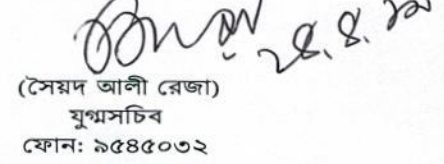 ২৪.৪.১৯
(সৈয়দ আলী রেজা)
যুগ্মসচিব
ফোন: ৯৫৪৫০৩২